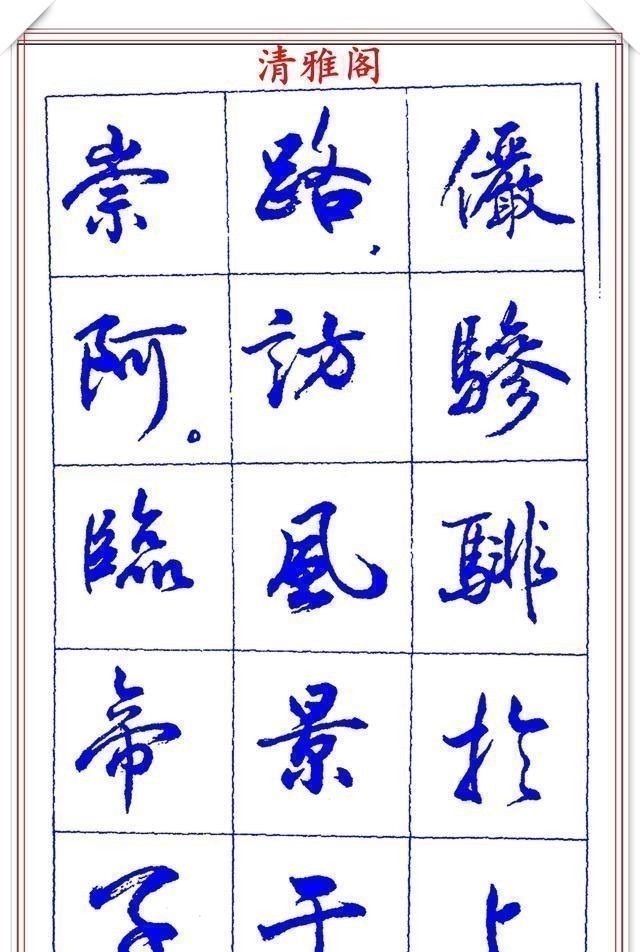 清雅阁
儼驂騑於上
路,訪風景于
崇阿。臨帝子